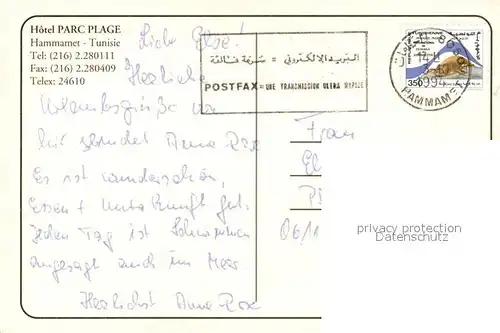 Hôtel PARC PLAGE
Hammamet - Tunisie
Tel: (216) 2.280111
Fax: (216) 2.280409
Telex: 24610
البريد الإلكتروني = سرعة فائقة
POSTFAX = UNE TRANSMISSION ULTRA RAPIDE
14-H
994
HAMMAMET
350
Liebe Else!
Herzliche
Urlaubsgrüße von
hier sendet Anne Rose
Es ist wunderschön,
Essen + Unterkunft gut.
Jeden Tag ist Schwimmen
angesagt auch im Meer
Herzlichst Anne Rose
Frau
El
P
06/11
privacy protection
Datenschutz